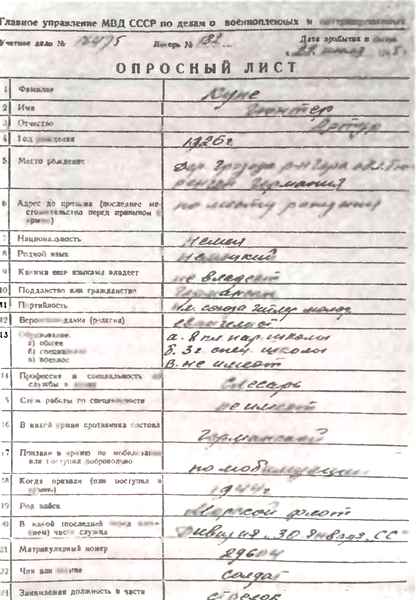 Главное управление МВД СССР по делам о военнопленных и
Учетное дело №
Лагерь №
Дата прибытия в
ОПРОСНЫЙ ЛИСТ
1 Фамилия Куне
2 Имя Гюнтер
3 Отчество Артур
4 Год рождения 1926 г.
5 Место рождения
Германия
6 Адрес до призыва (последнее местожительство перед призывом в
по месту рождения
7 Национальность немец
8 Родной язык немецкий
9 Какими еще языками владеет не владеет
10 Подданство или гражданство
11 Партийность
12 Вероисповедание (религия) евангелист
13 Образование:
а) общее а. 8 кл. нар. школы
б) специальное б. 3 г. спец. школы
в) военное в. не имеет
14 Профессия и специальность до службы в слесарь
15 Стаж работы по специальности не имеет
16 В какой армии противника состоял Германской
17 Призван в армию по мобилизации или поступил добровольно по мобилизации
18 Когда призван (или поступил в армию) 1944 г.
19 Род войск Морской флот
20 В какой (последней перед части служил Дивизия „30 Января" СС
21 Матрикулярный номер 29604
22 Чин или солдат
23 Занимаемая должность в части стрелок